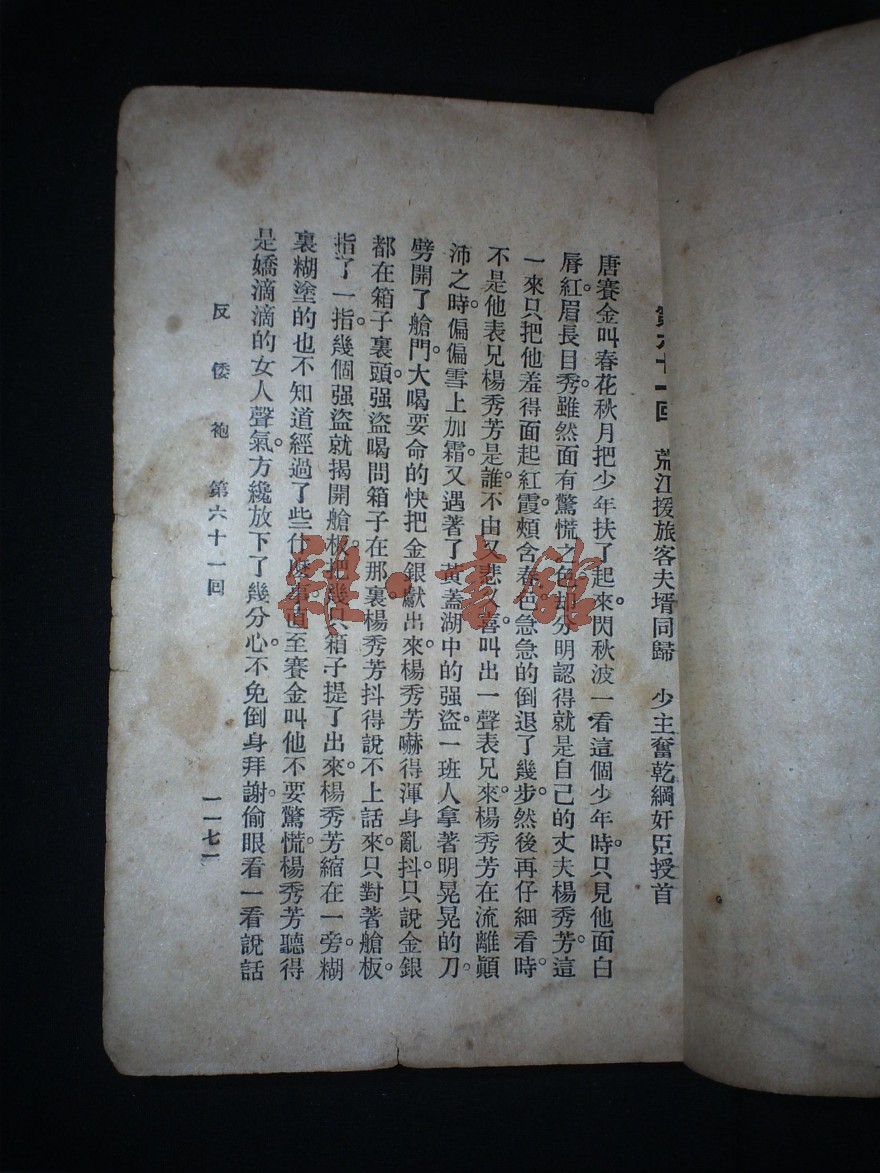 第六十一回　荒江援旅客夫壻同歸　少主奮乾綱奸臣授首
唐賽金叫春花秋月把少年扶了起來。閃秋波一看這個少年時。只見他面白
脣紅。眉長目秀。雖然面有驚慌之色。却分明認得就是自己的丈夫楊秀芳。這
一來只把他羞得面起紅霞。頰含春色。急急的倒退了幾步。然後再仔細看時。
不是他表兄楊秀芳是誰。不由又悲又喜。叫出一聲表兄來。楊秀芳在流離顚
沛之時。偏偏雪上加霜。又遇著了黃蓋湖中的强盜。一班人拿著明晃晃的刀。
劈開了艙門。大喝要命的快把金銀獻出來。楊秀芳嚇得渾身亂抖。只說金銀
都在箱子裏頭。强盜喝問箱子在那裏。楊秀芳抖得說不上話來。只對著艙板。
指了一指。幾個强盜就揭開艙板。把幾只箱子提了出來。楊秀芳縮在一旁。糊
裏糊塗的也不知道經過了些什麽事。直至賽金叫他不要驚慌。楊秀芳聽得
是嬌滴滴的女人聲氣。方纔放下了幾分心。不免倒身拜謝。偷眼看一看說話
反倭袍　第六十一回　一一七一
雜·書館